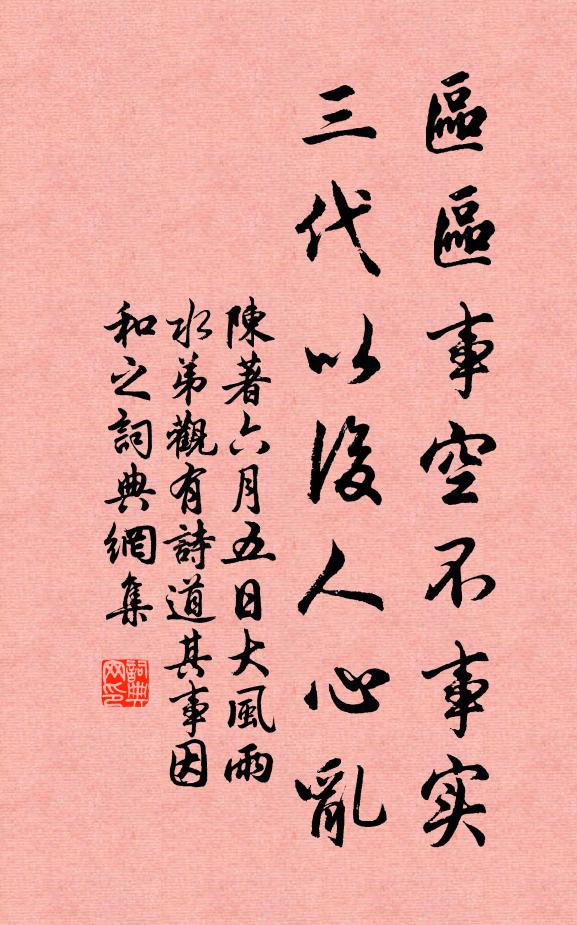 區區事空不事实
三代以後人心亂
陳著六月五日大風雨
水弟觀有詩道其事因
和之詞典網集
詞典
网印